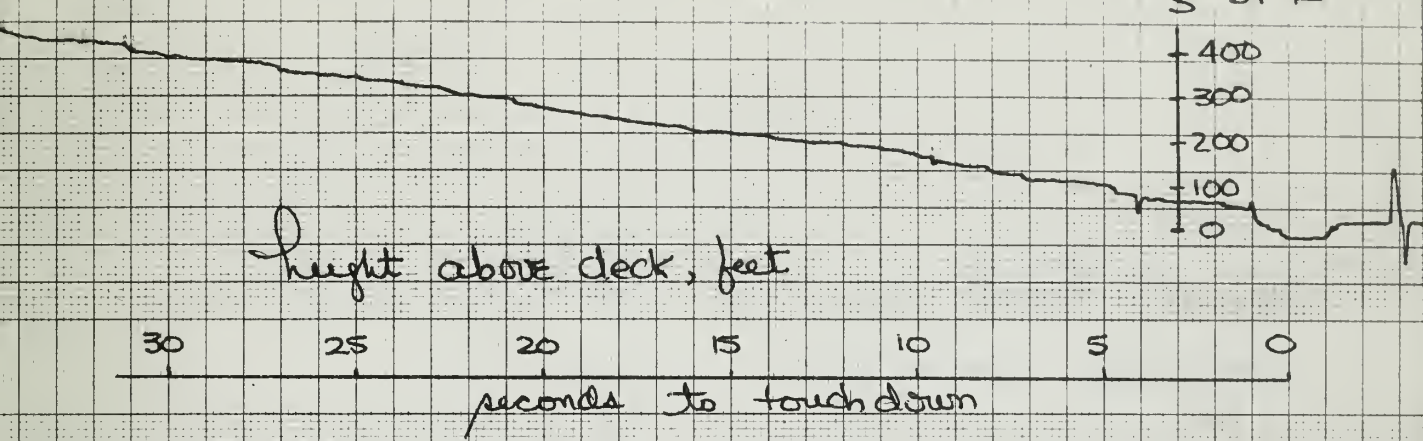 400
300
200
100
0
height above deck, feet
30 25 20 15 10 5 0
seconds to touchdown